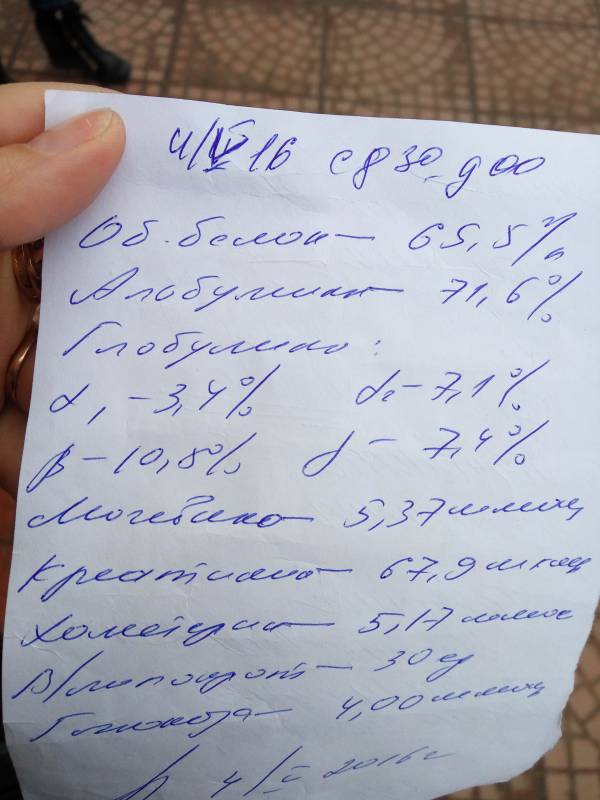 4/V 16 с 8 30 до 9 00
Об. белок – 65,5 г/л
Альбумин – 71,6%
Глобулины:
α₁ – 3,4% α₂ – 7,1%
β – 10,8% γ – 7,4%
Мочевина – 5,37 ммоль
Креатинин – 67,9 мкмоль
Холестерин – 5,17 ммоль
В/липопрот – 30 ед
Глюкоза – 4,00 ммоль
4/V 2016 г